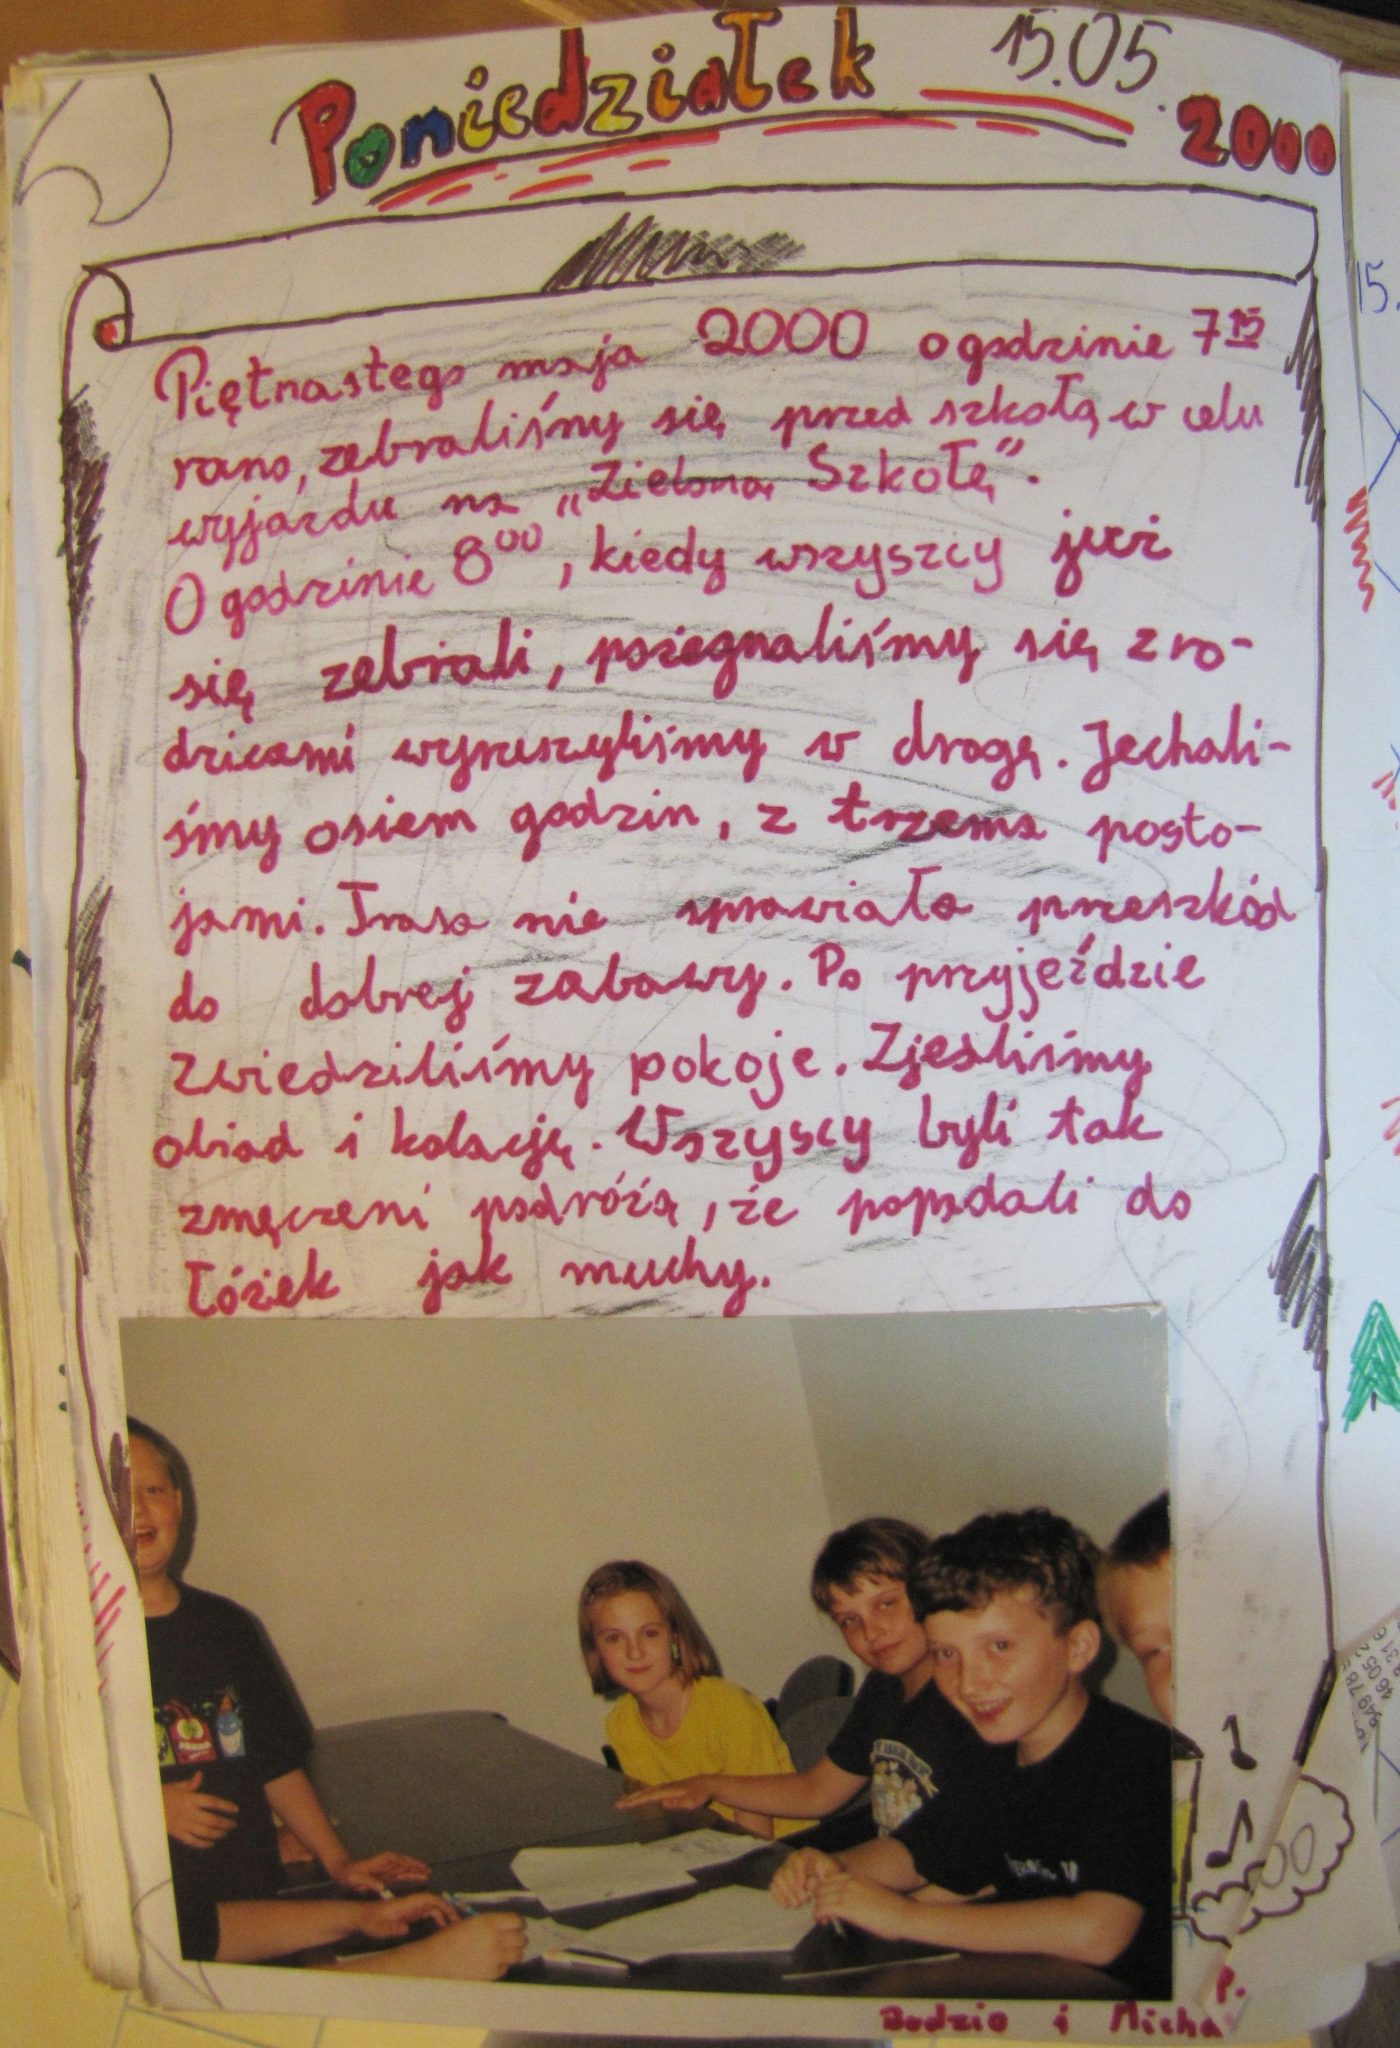 Poniedziałek 15.05.
2000
Piętnastego maja 2000 o godzinie 7 15
rano, zebraliśmy się przed szkołą w celu
wyjazdu na „Zieloną Szkołę”.
O godzinie 8 00, kiedy wszyscy już
się zebrali, pożegnaliśmy się z ro-
dzicami wyruszyliśmy w drogę. Jechali-
śmy osiem godzin, z trzema posto-
jami. Trasa nie sprawiała przeszkód
do dobrej zabawy. Po przyjeździe
zwiedziliśmy pokoje. Zjedliśmy
obiad i kolację. Wszyscy byli tak
zmęczeni podróżą, że popadali do
łóżek jak muchy.
Budzio i Micha P.